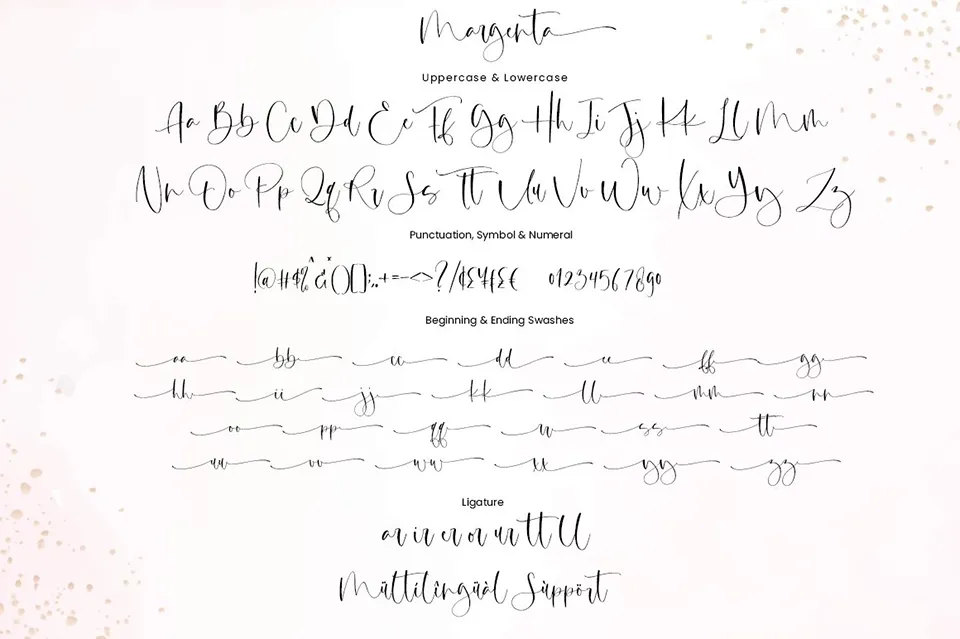 Margenta
Uppercase & Lowercase
Aa Bb Cc Dd Ee Ff Gg Hh Ii Jj Kk Ll Mm
Nn Oo Pp Qq Rr Ss Tt Uu Vv Ww Xx Yy Zz
Punctuation, Symbol & Numeral
0123456789
Beginning & Ending Swashes
aa bb cc dd ee ff gg
hh ii jj kk ll mm nn
oo pp qq rr ss tt
uu vv ww xx yy zz
Ligature
ar ir er or ur tt ll
Mültilîngüàl Süppört